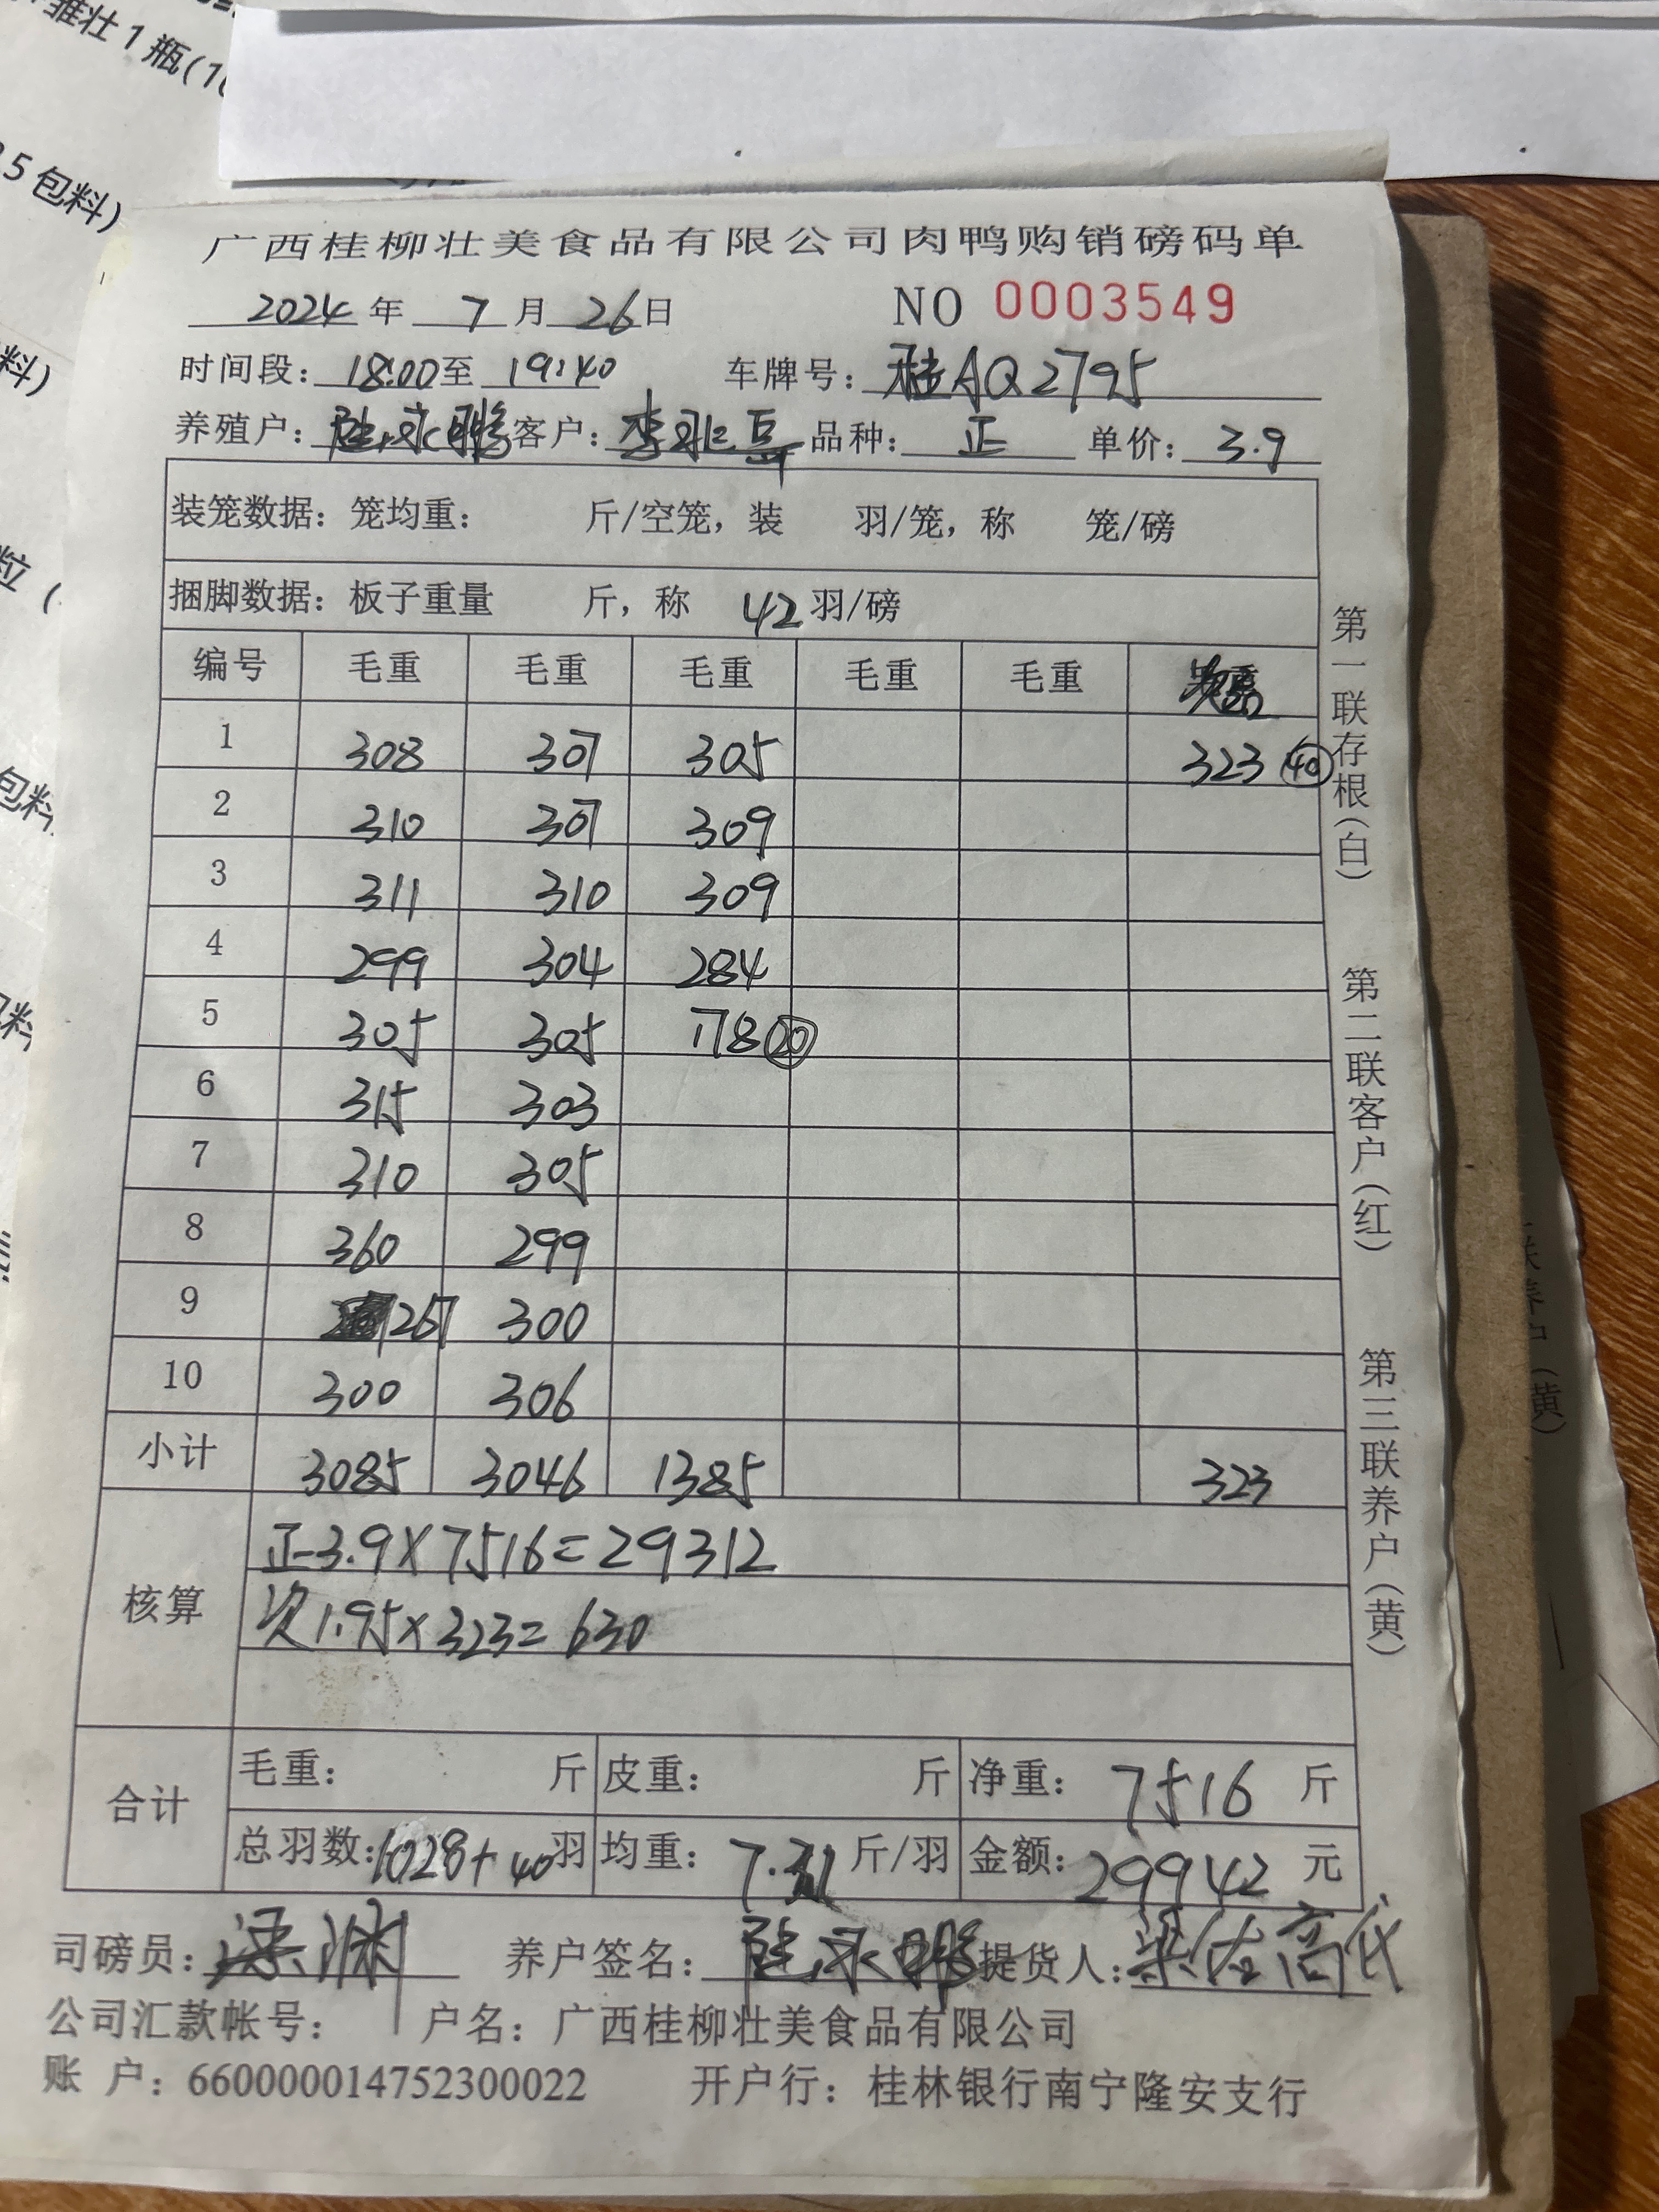 雏壮1瓶(10
.5包料)
料)
粒(
包料
广西桂柳壮美食品有限公司肉鸭购销磅码单
2024年7月26日 NO 0003549
时间段：18:00至19:40 车牌号：桂AQ2795
养殖户：陆永鹏 客户： 品种：正 单价：3.9
装笼数据：笼均重： 斤/空笼，装 羽/笼，称 笼/磅
捆脚数据：板子重量 斤，称 42羽/磅
编号 毛重 毛重 毛重 毛重 毛重
1 308 307 305 323 40
2 310 307 309
3 311 310 309
4 299 304 284
5 305 305 178 20
6 315 303
7 310 305
8 360 299
9 267 300
10 300 306
小计 3085 3046 1385 323
核算
正-3.9×7516=29312
次1.95×323=630
合计
毛重： 斤 皮重： 斤 净重：7516斤
总羽数：1028+40羽 均重：7.31斤/羽 金额：29942元
司磅员：梁 养户签名：陆永鹏 提货人：
公司汇款帐号： 户名：广西桂柳壮美食品有限公司
账 户：660000014752300022 开户行：桂林银行南宁隆安支行
第一联存根(白)
第二联客户(红)
第三联养户(黄)